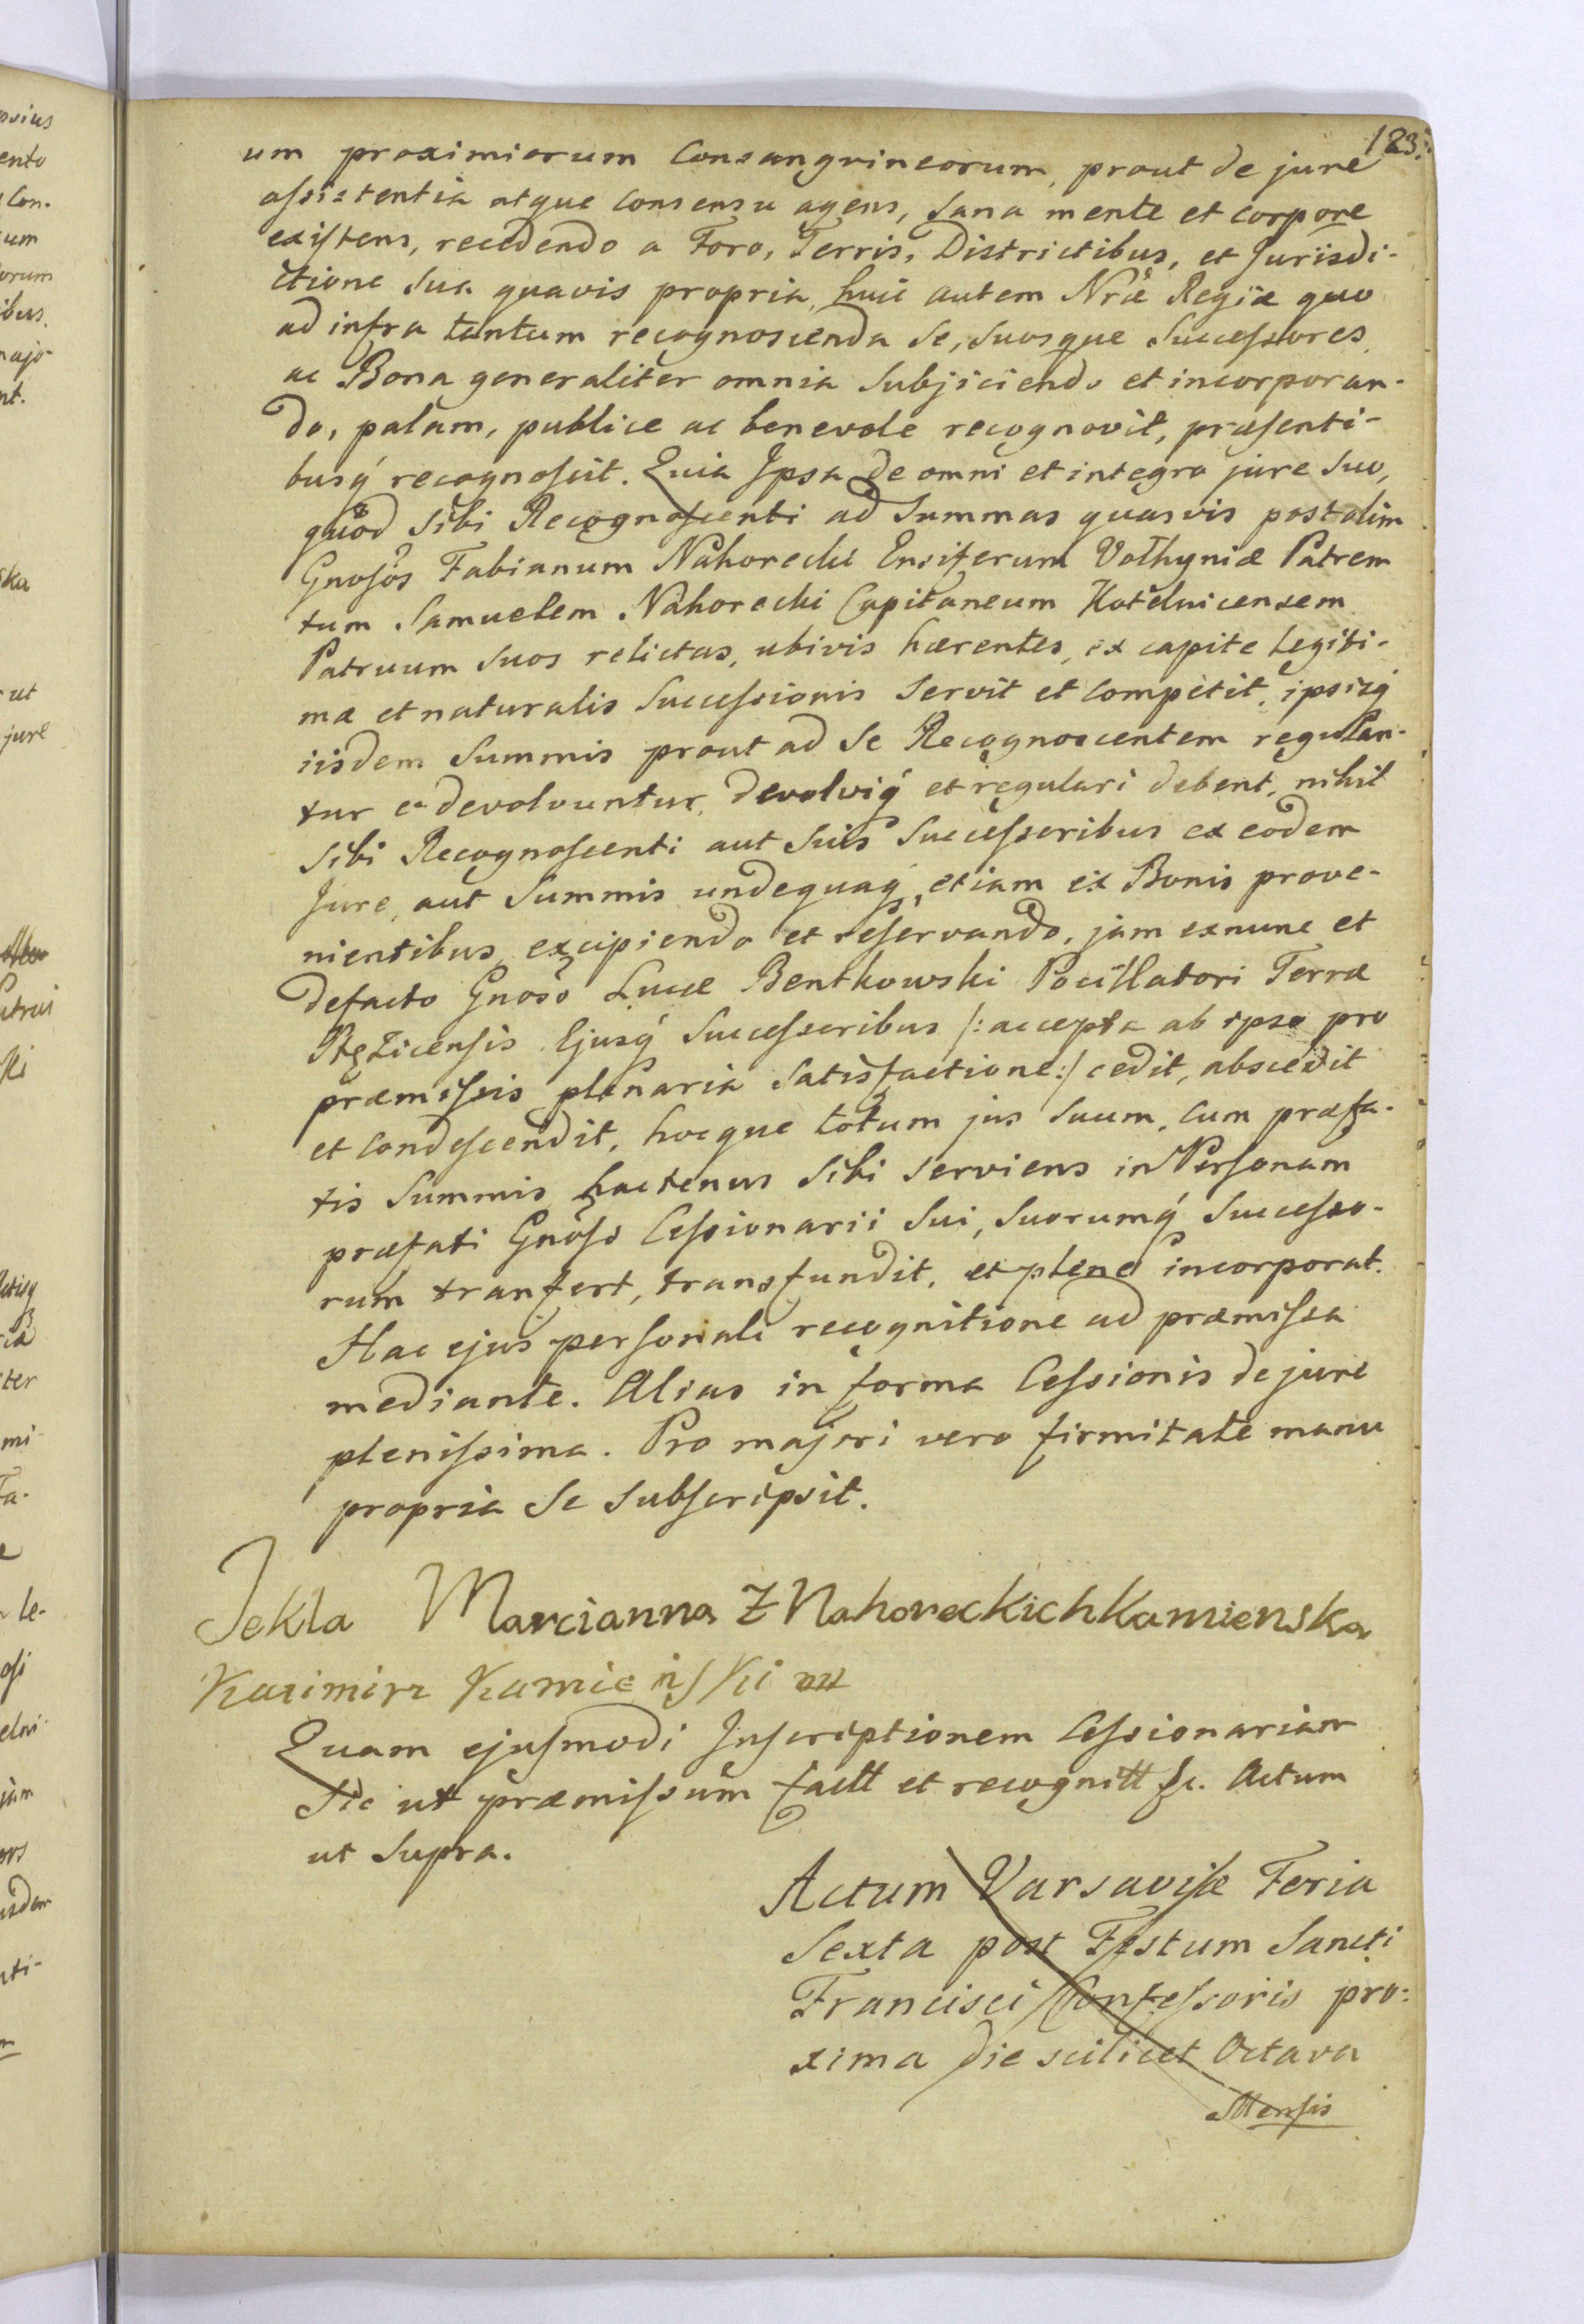 183.
um proximiorum Consangvineorum, prout de jure
assistentia atque consensu agens, Sana mente et corpore
existens, recedendo a Foro, Terris, Districtibus, et Jurisdi-
ctione Sua quavis propria, huic autem Nrae Regiae quo
ad infra tantum recognoscenda Se, Suosque Successores
ac Bona generaliter omnia Subjiciendo et incorporan-
do, palam, publice ac benevole recognovit, praesenti-
busq́ recognoscit. Quia Ipsa de omni et integro jure Suo,
quod Sibi Recognoscenti ad Summas quasvis post olim
Gnosos Fabianum Nahorecki Ensiferum Volhyniae Patrem
tum Samuelem Nahorecki Capitaneum Kotelnicensem
Patruum Suos relictas, ubivis haerentes, ex capite Legiti-
mae et naturalis Successionis Servit et competit, ipsisq́
iisdem Summis prout ad Se Recognoscentem regulan-
tur et devolvuntur, devolviq́ et regulari debent, nihil
Sibi Recognoscenti aut Suis Successoribus ex eodem
Jure, aut Summis undequaq́, etiam ex Bonis prove-
nientibus, excipiendo et reservando, jam exnunc et
defacto Gnoso Lucae Bentkowski Pocillatori Terrae
RĘzicensis Ejusq́ Successoribus /: accepta ab ipso pro
praemissis plenaria Satisfactione :/ cedit, abscedit
et condescendit, hocque totum jus Suum, cum praefa-
tis Summis hactenus Sibi Serviens in Personam
praefati Gnoso Cessionarii Sui, Suorumq́ Successo-
rum tranfert, transfundit, et plene incorporat.
Hac ejus personali recognitione ad praemissa
mediante. Alias in forma Cessionis de jure
plenissima. Pro majori vero firmitate manu
propria Se Subscripsit.
Tekla Marcianna Z Nahoreckich Kamienska
Kazimirz Kamieński
Quam ejusmodi Inscriptionem Cessionariam
Sic ut praemissum factt et recognitt &c. Actum
ut Supra.
Actum Varsaviae Feria
Sexta post Festum Sancti
Francisci Confessoris pro-
xima die scilicet Octava
Mensis